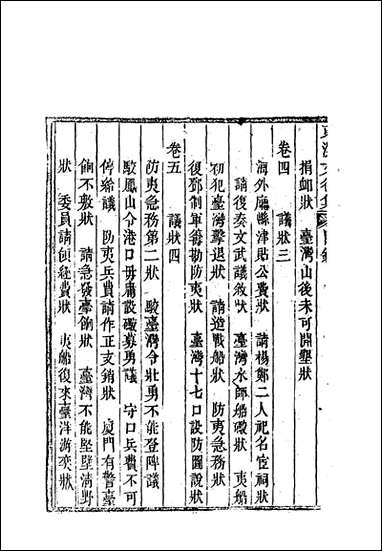 東溟文後集 目錄
捐卹狀　臺灣山後未可開墾狀
卷四　議狀三
海外廳縣津貼公費狀　請楊鄭二人祀名宦祠狀
請復奏文武議敘狀　臺灣水師船礟狀　夷船
初犯臺灣擊退狀　請造戰船狀　防夷急務狀
復鄧制軍籌勦防夷狀　臺灣十七口設防圖說狀
卷五　議狀四
防夷急務第二狀　駮臺灣令壯勇不能登陴議
駮鳳山令港口毋庸設礮募勇議　守口兵費不可
停給議　防夷兵費請作正支銷狀　廈門有警臺
餉不敷狀　請急發臺餉狀　臺灣不能堅壁清野
狀　委員請領經費狀　夷船復來臺洋游奕狀